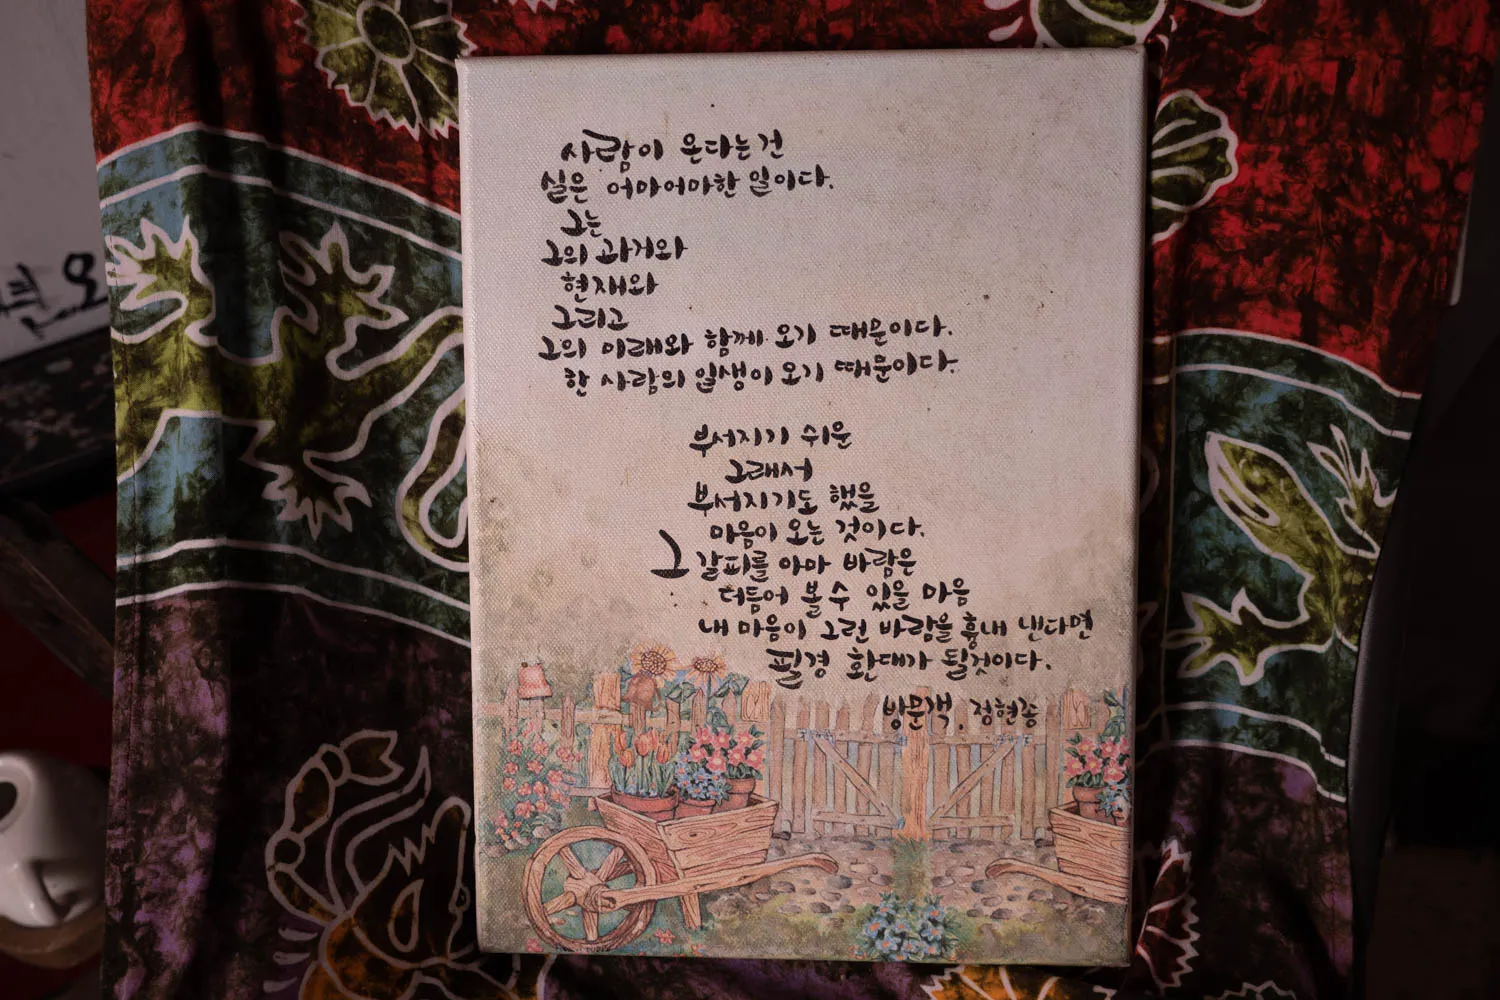 사람이 온다는건
실은 어마어마한 일이다.
그는
그의 과거와
현재와
그리고
그의 미래와 함께 오기 때문이다.
한 사람의 일생이 오기 때문이다.
부서지기 쉬운
그래서
부서지기도 했을
마음이 오는 것이다.
그 갈피를 아마 바람은
더듬어 볼 수 있을 마음
내 마음이 그런 바람을 흉내 낸다면
필경 환대가 될것이다.
방문객. 정현종